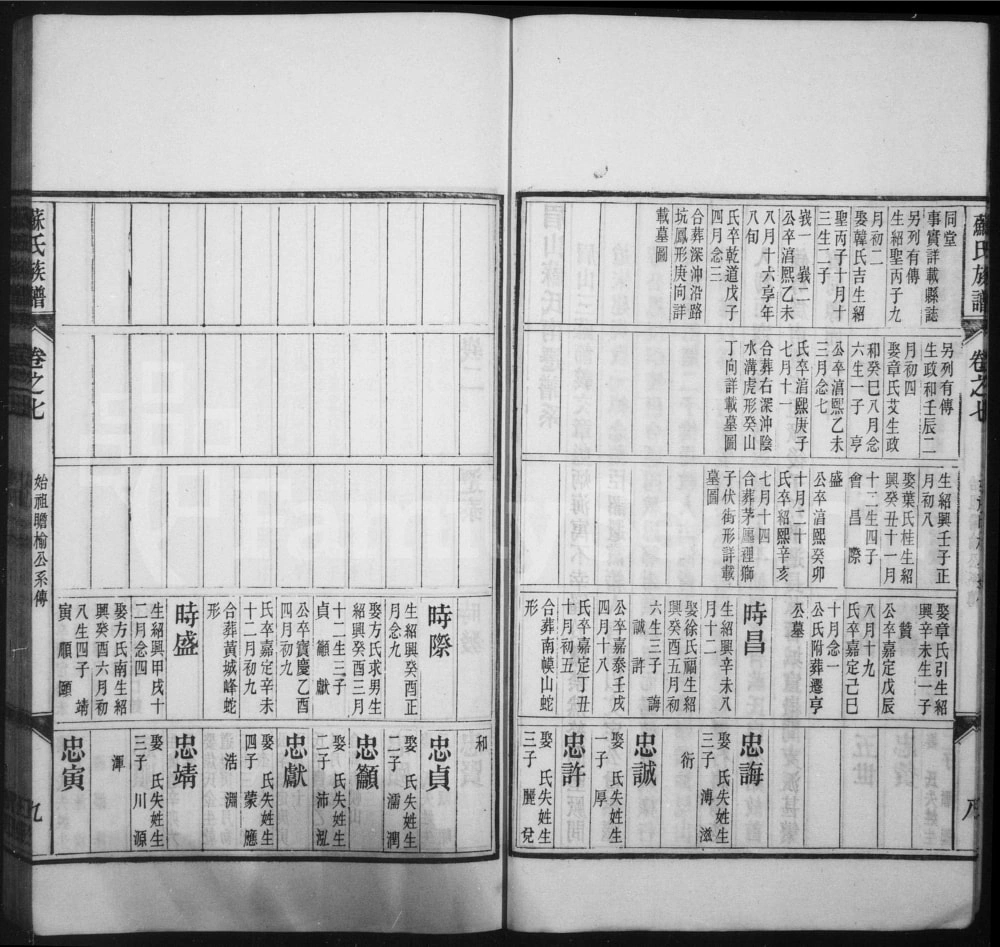 蘇氏族譜
卷之七
八
同堂
事實詳載縣誌
另列有傳
生紹聖丙子九
月初二
娶韓氏吉生紹
聖丙子十月十
三生二子
峩一 峩二
公卒淯熙乙未
八月十六享年
八旬
氏卒乾道戊子
四月念三
合葬深沖沿路
坑鳳形庚向詳
載墓圖
另列有傳
生政和壬辰二
月初四
娶章氏艾生政
和癸巳八月念
六生一子 亨
公卒淯熙乙未
三月念七
氏卒淯熙庚子
七月十一
合葬右深沖陰
水溝虎形癸山
丁向詳載墓圖
生紹興壬子正
月初八
娶葉氏桂生紹
興癸丑十一月
十二生四子
會 昌 際
盛
公卒淯熙癸卯
十月二十
氏卒紹熙辛亥
七月十四
合葬茅廱裡獅
子伏街形詳載
墓圖
娶章氏引生紹
興辛未生一子
贊
公卒嘉定戊辰
八月十九
氏卒嘉定己巳
十月念一
公氏附葬遷亨
公墓
時昌
生紹興辛未八
月十二
娶徐氏福生紹
興癸酉五月初
六生三子 誨
誠 許
公卒嘉泰壬戌
四月十八
氏卒嘉定丁丑
十月初五
合葬南幙山蛇
形
忠誨
娶 氏失姓生
三子 溥 滋
衍
忠誠
娶 氏失姓生
一子 厚
忠許
娶 氏失姓生
三子 麗 兌
和
時際
生紹興癸酉正
月念九
娶方氏求男生
紹興癸酉三月
十二生三子
貞 籲 獻
公卒寶慶乙酉
四月初九
氏卒嘉定辛未
十二月初九
合葬黃城峰蛇
形
時盛
生紹興甲戌十
二月念四
娶方氏南生紹
興癸酉六月初
八生四子 靖
寅 順 頤
忠貞
娶 氏失姓生
二子 濡 潤
忠籲
娶 氏失姓生
二子 沛 泓
忠獻
娶 氏失姓生
四子 蒙 應
浩 淵
忠靖
娶 氏失姓生
三子 川 源
渾
忠寅
蘇氏族譜
卷之七
始祖瞻榆公系傳
九